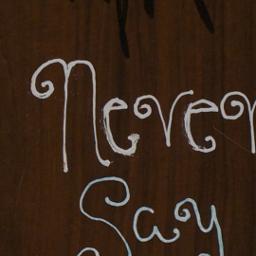 Never
Say